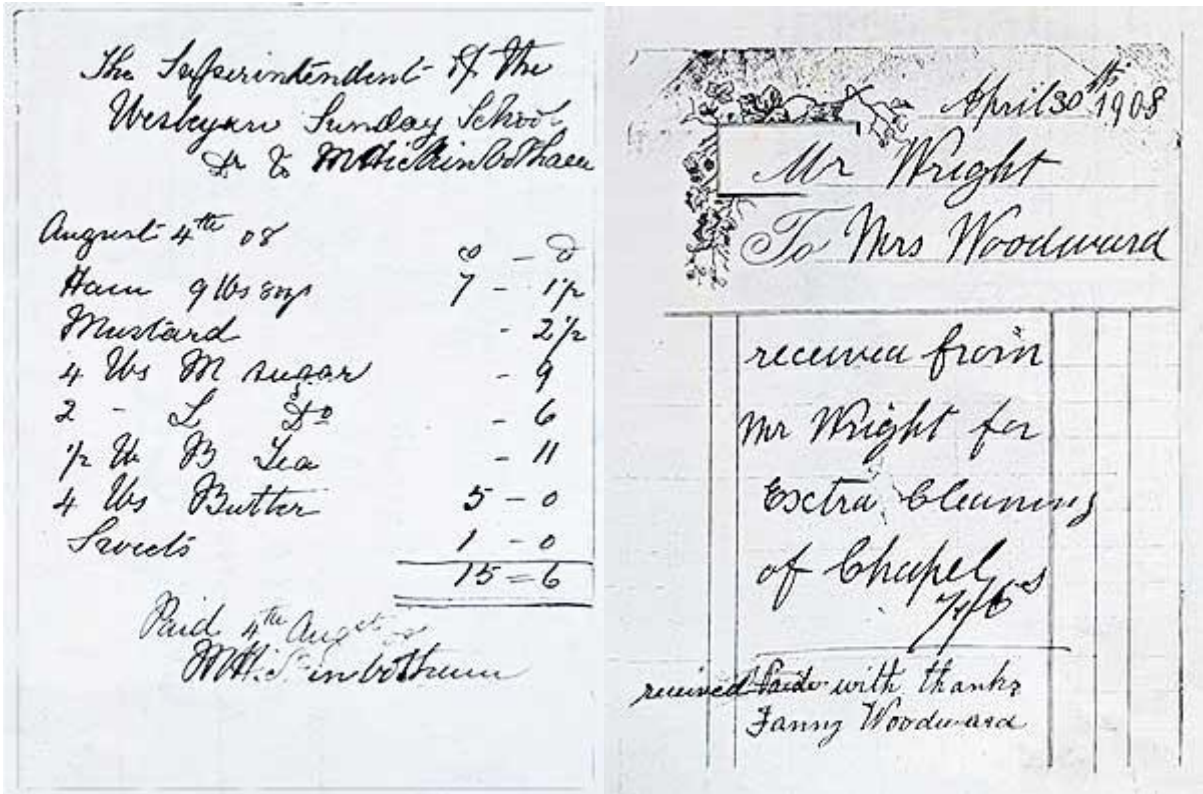 The Superintendent of the
Wesleyan Sunday School
Dr to M Hickinbotham
August 4th 08
s - d
Ham 9 lbs 8ozs 7 - 1 1/2
Mustard - 2 1/2
4 lbs M sugar - 9
2 - L Do - 6
1/2 lb B Tea - 11
4 lbs Butter 5 - 0
Sweets 1 - 0
15 = 6
Paid 4th Augst 08
M Hickinbotham
April 30th 1908
Mr Wright
To Mrs Woodward
received from
Mr Wright for
Exctra Cleaning
of Chapel
7/6
received Paide with thanks
Fanny Woodward